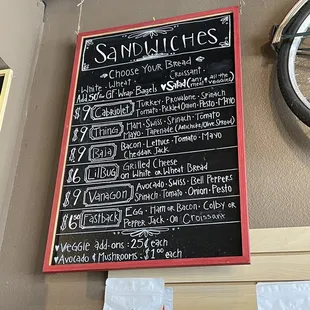 SANDWICHES
Choose Your Bread
White · Wheat · Croissant ·
Add 50¢ GF Wrap Bagels ♥ Salad (meat, all the veggies)
$9 Cabriolet Turkey · Provolone · Spinach
Tomato · Pickled Onion · Pesto · Mayo
$9 Thing Ham · Swiss · Spinach · Tomato
Mayo · Tapenade (Artichoke/Olive Spread)
$9 Baja Bacon · Lettuce · Tomato · Mayo
Cheddar Jack
$6 Lil Bug Grilled Cheese
on White or Wheat Bread
$9 Vanagon Avocado · Swiss · Bell Peppers
Spinach · Tomato · Onion · Pesto
$6.50 Fastback Egg · Ham or Bacon · Colby or
Pepper Jack · On Croissant
♥ Veggie add-ons: 25¢ each
♥ Avocado & Mushrooms: $1.00 each